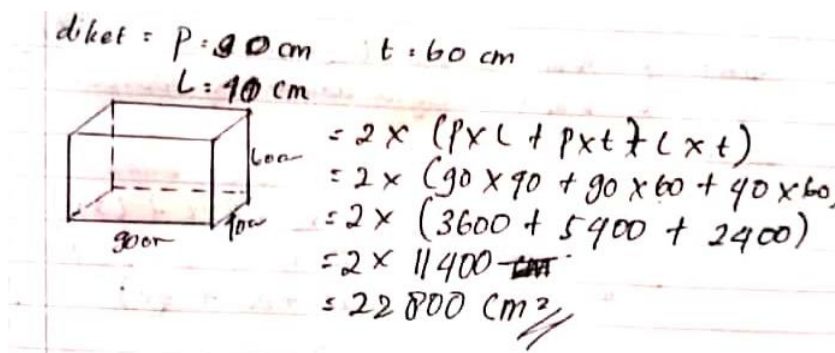 diket = P = 90 cm t = 60 cm
L = 40 cm
60cm
90cm
40cm
= 2 x (p x l + p x t + l x t)
= 2 x (90 x 40 + 90 x 60 + 40 x 60)
= 2 x (3600 + 5400 + 2400)
= 2 x 11400
= 22800 cm²